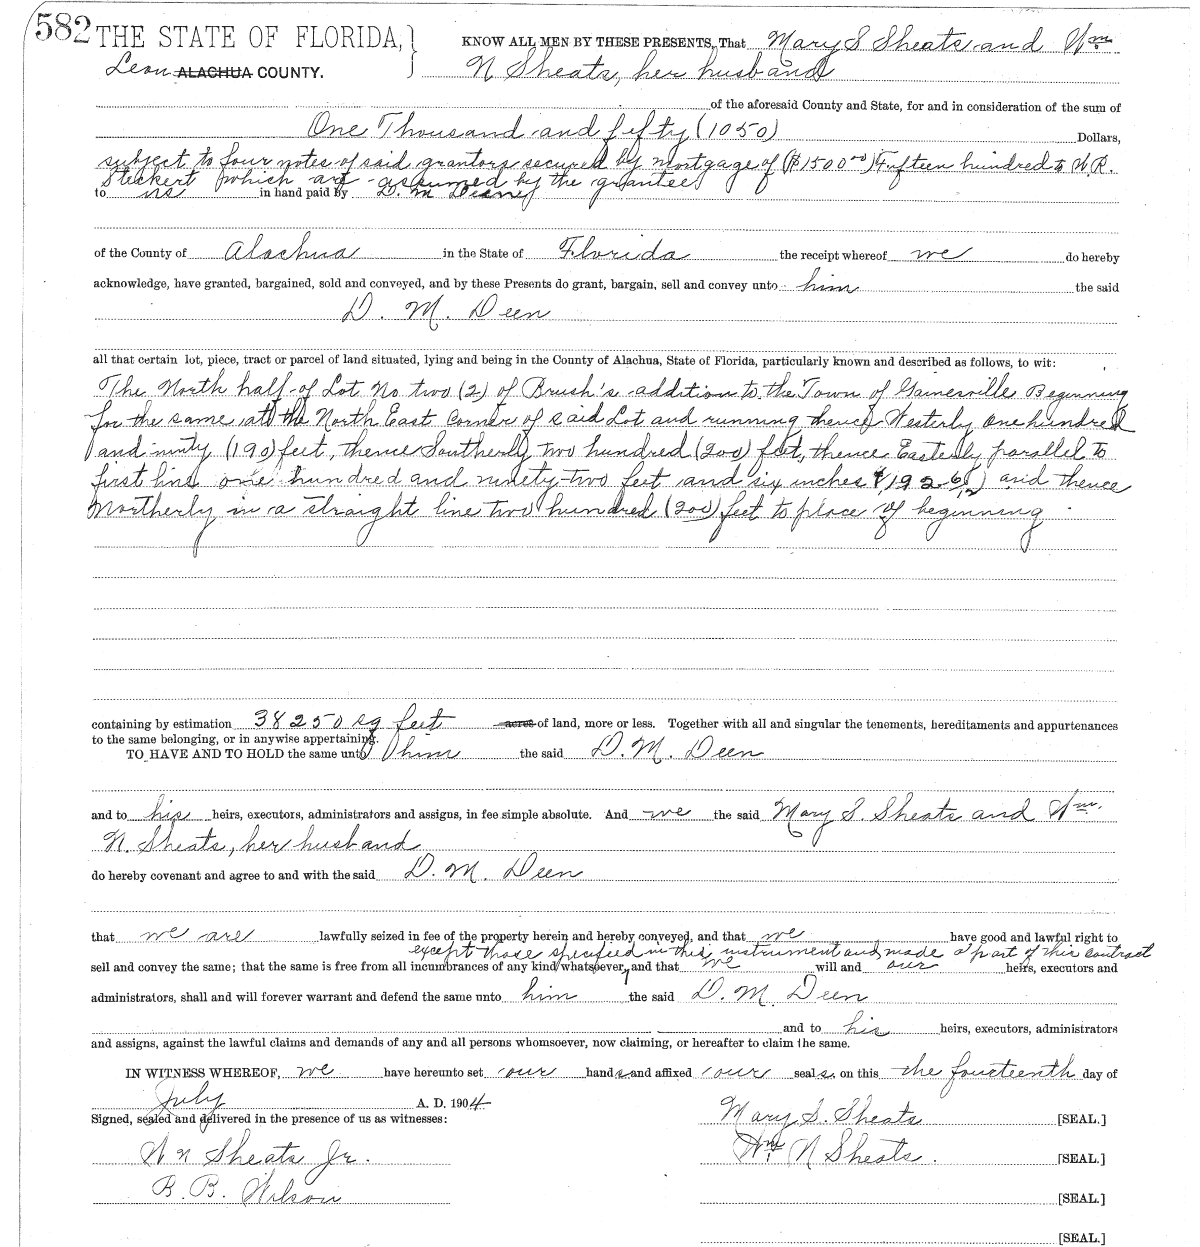 582 THE STATE OF FLORIDA,
Leon ALACHUA COUNTY.
KNOW ALL MEN BY THESE PRESENTS, That Mary S Sheats and Wm
N Sheats, her husband
of the aforesaid County and State, for and in consideration of the sum of
One Thousand and fifty (1050) Dollars,
subject to four notes of said grantors secured by mortgage of ($1500.00) Fifteen hundred to W.R.
Steckert which are assumed by the grantee
to us in hand paid by D. M Deen
of the County of Alachua in the State of Florida the receipt whereof we do hereby
acknowledge, have granted, bargained, sold and conveyed, and by these Presents do grant, bargain, sell and convey unto him the said
D. M. Deen
all that certain lot, piece, tract or parcel of land situated, lying and being in the County of Alachua, State of Florida, particularly known and described as follows, to wit:
The North half of Lot No two (2) of Brush's addition to the Town of Gainesville Beginning
for the same at the North East Corner of said Lot and running thence Westerly one hundred
and ninty (190) feet, thence Southerly two hundred (200) feet, thence Easterly parallel to
first line one hundred and ninety-two feet and six inches (192-6/12) and thence
Northerly in a straight line two hundred (200) feet to place of beginning
containing by estimation 38250 sq feet acres of land, more or less. Together with all and singular the tenements, hereditaments and appurtenances
to the same belonging, or in anywise appertaining.
TO HAVE AND TO HOLD the same unto him the said D. M. Deen
and to his heirs, executors, administrators and assigns, in fee simple absolute. And we the said Mary S. Sheats and Wm.
N. Sheats, her husband
do hereby covenant and agree to and with the said D. M. Deen
that we are lawfully seized in fee of the property herein and hereby conveyed, and that we have good and lawful right to
except those specified in this instrument and made a part of this contract
sell and convey the same; that the same is free from all incumbrances of any kind whatsoever, and that we will and our heirs, executors and
administrators, shall and will forever warrant and defend the same unto him the said D. M. Deen
and to his heirs, executors, administrators
and assigns, against the lawful claims and demands of any and all persons whomsoever, now claiming, or hereafter to claim the same.
IN WITNESS WHEREOF, we have hereunto set our hands and affixed our seals, on this the fourteenth day of
July A. D. 1904
Signed, sealed and delivered in the presence of us as witnesses:
Mary S. Sheats [SEAL.]
W N Sheats Jr.
Wm N Sheats. [SEAL.]
B. B. Wilson
[SEAL.]
[SEAL.]